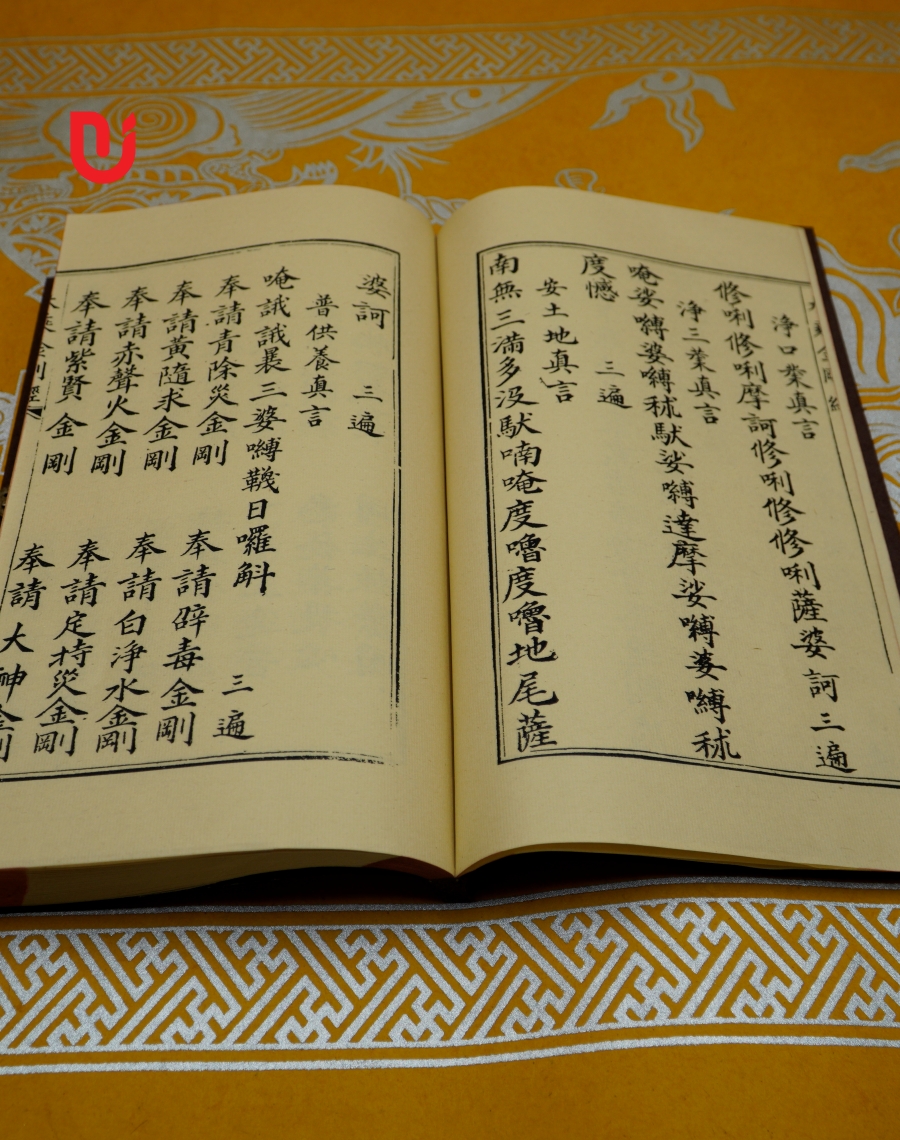 淨口業真言
修唎修唎摩訶修唎修修唎薩婆訶三遍
淨三業真言
唵娑嚩婆嚩秫馱娑嚩達摩娑嚩婆嚩秫
度憾 三遍
安土地真言
南無三滿多沒馱喃唵度嚕度嚕地尾薩
婆訶 三遍
普供養真言
唵誐誐曩三婆嚩韈日囉斛 三遍
奉請青除災金剛 奉請辟毒金剛
奉請黃隨求金剛 奉請白淨水金剛
奉請赤聲火金剛 奉請定持災金剛
奉請紫賢金剛 奉請大神金剛